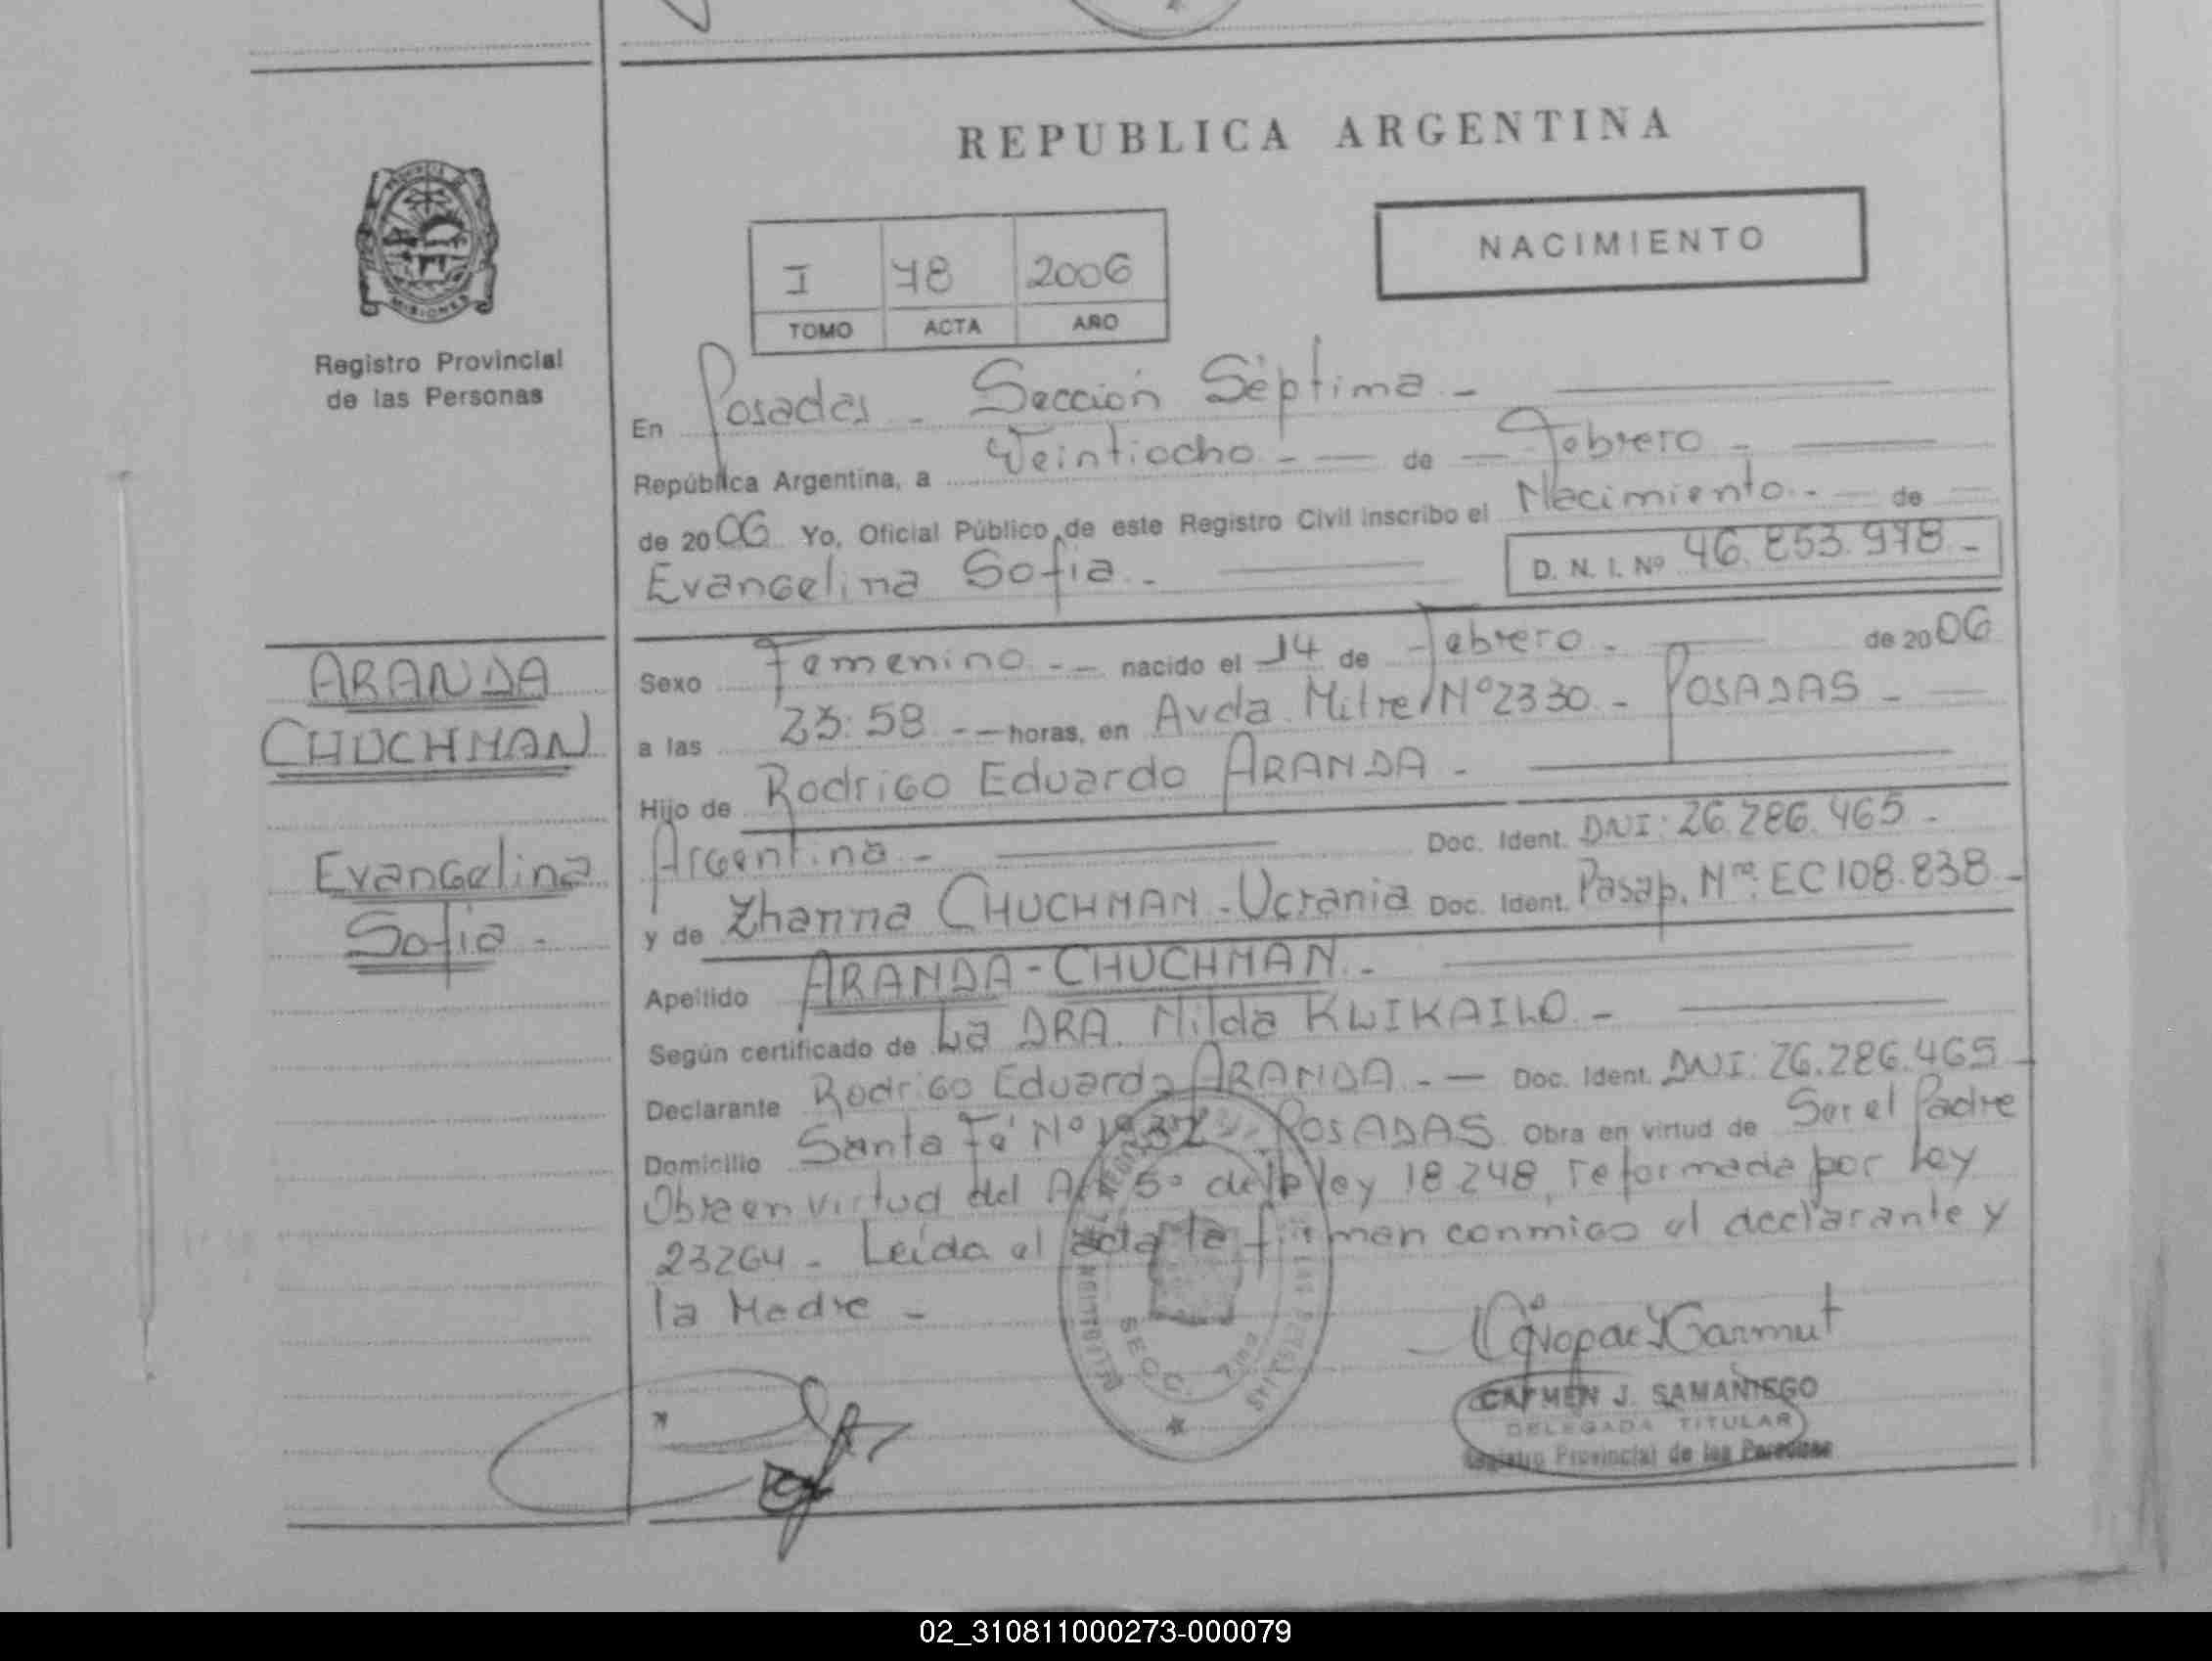 REPUBLICA ARGENTINA
NACIMIENTO
I 78 2006
TOMO ACTA AÑO
MISIONES
Registro Provincial
de las Personas
ARANDA
CHUCHMAN
Evangelina
Sofia -
En Posadas - Sección Séptima -
República Argentina, a Veintiocho - - de - Febrero -
de 2006 Yo, Oficial Público de este Registro Civil inscribo el Nacimiento - de
Evangelina Sofia - D. N. I. Nº 46.853.978 -
Sexo Femenino - - nacido el 14 de Febrero - de 2006
a las 23:58 - - horas, en Avda. Mitre Nº 2330 - POSADAS -
Hijo de Rodrigo Eduardo ARANDA -
Argentina - Doc. Ident. DNI: 26.286.465 -
y de Zhanna CHUCHMAN - Ucrania Doc. Ident. Pasap. Nro: EC108.838 -
Apellido ARANDA - CHUCHMAN -
Según certificado de La DRA. Nilda KLIKAILO -
Declarante Rodrigo Eduardo ARANDA - - Doc. Ident. DNI: 26.286.465 -
Domicilio Santa Fé Nº 1937 POSADAS Obra en virtud de Ser el Padre
Obra en virtud del Art 5º de la ley 18248, reformada por ley
23264 - Leída el acta la firman conmigo el declarante y
la Madre -
SECC. 7ma
CARMEN J. SAMANIEGO
DELEGADA TITULAR
Registro Provincial de las Personas
02_310811000273-000079